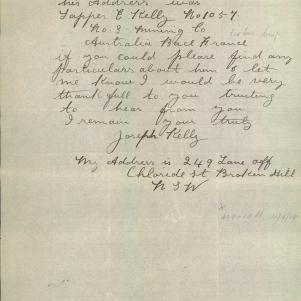 his Address was
Sapper E Kelly No 1057
No. 3 Mining Co
Australia Bace France
if you could please find any
particulars about him & let
me know I would be very
thankfull to you trusting
to hear from you
I remain your truly
Joseph Kelly
My Address is 249 Lane off
Chloride St Broken Hill
N S W